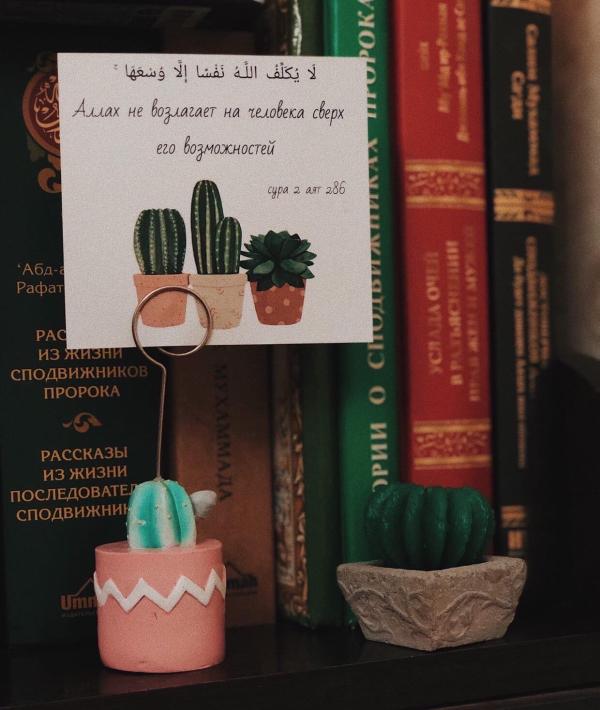 لَا يُكَلِّفُ اللَّهُ نَفْسًا إِلَّا وُسْعَهَا ۚ
Аллах не возлагает на человека сверх
его возможностей
сура 2 аят 286
'Абд-а
Рафат
РАС
ИЗ ЖИЗНИ
СПОДВИЖНИКОВ
ПРОРОКА
РАССКАЗЫ
ИЗ ЖИЗНИ
ПОСЛЕДОВАТЕЛ
СПОДВИЖНИК
Umm
МУХАММАДА
ОРИИ О СПОДВИЖНИКАХ ПРОРОКА
УСЛАДА ОЧЕЙ
В РАЗЪЯСНЕНИИ